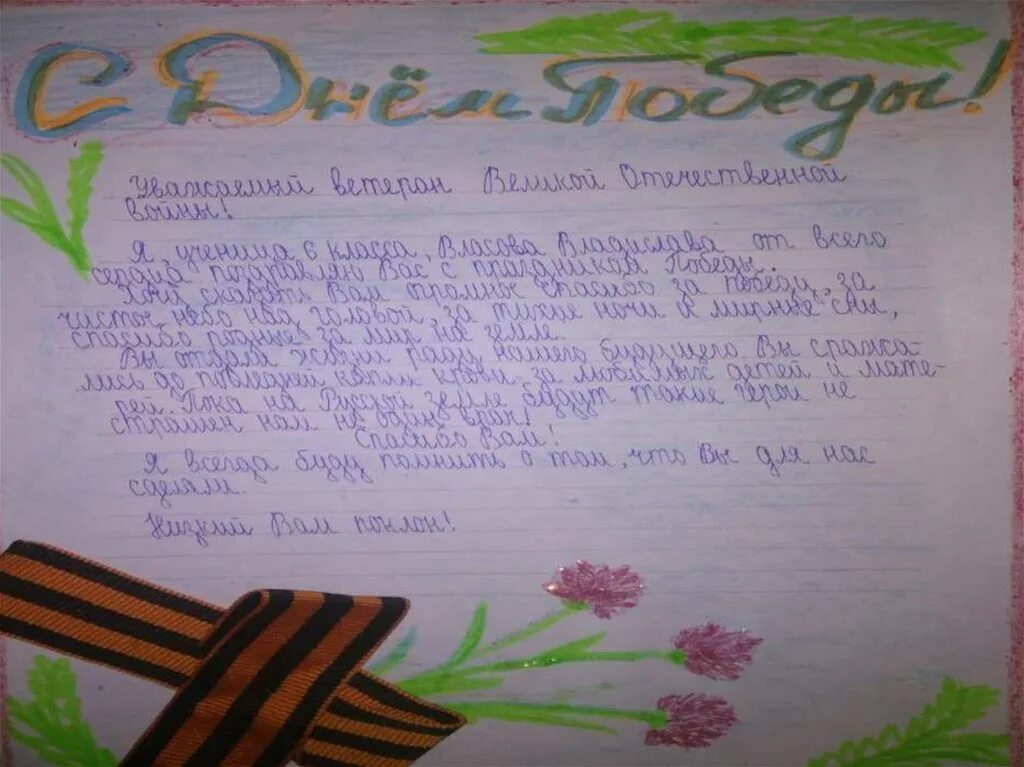 С Днём Победы!
Уважаемый ветеран Великой Отечественной
войны!
Я, ученица 6 класса, Власова Владислава от всего
сердца поздравляю Вас с праздником Победы.
Хочу сказать Вам огромное спасибо за победу, за
чистое небо над головой, за тихие ночи и мирные сны,
спасибо родные за мир на земле.
Вы отдали жизни ради нашего будущего. Вы сража-
лись до последней капли крови за любимых детей и мате-
рей. Пока на Русской земле будут такие герои не
страшен нам не один враг!
Спасибо Вам!
Я всегда буду помнить о том, что Вы для нас
сделали.
Низкий Вам поклон!